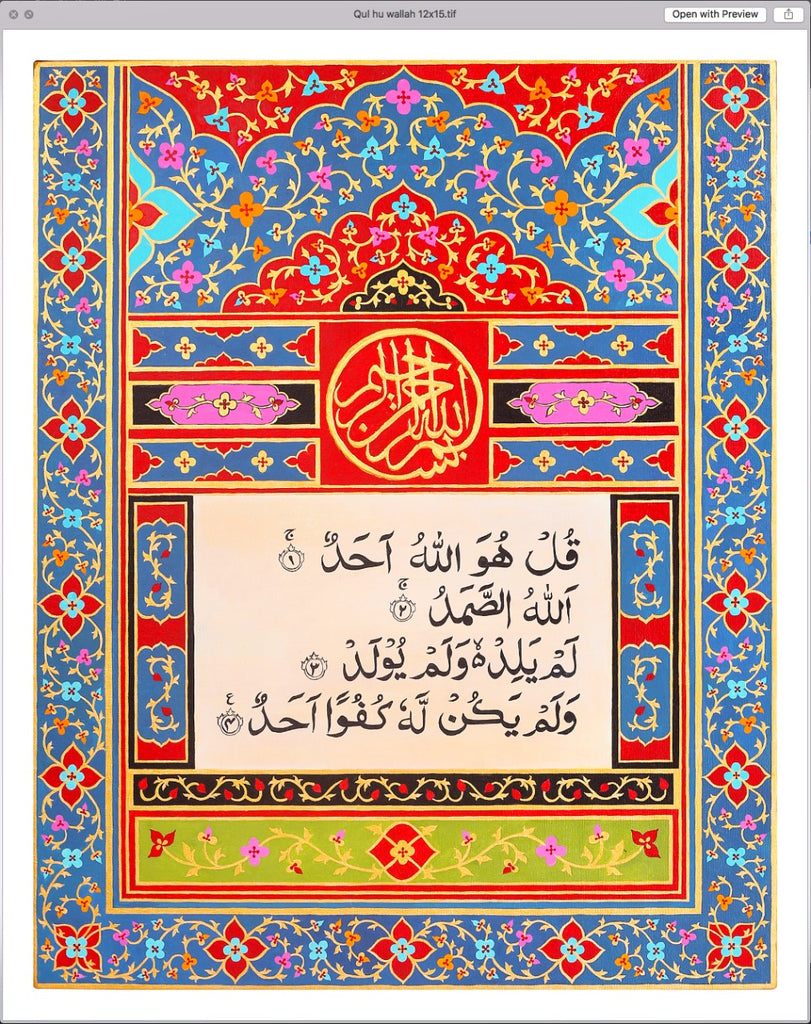 Qul hu wallah 12x15.tif
Open with Preview
بسم الله الرحمن الرحيم
قُلْ هُوَ اللّٰهُ اَحَدٌ ۚ ﴿۱﴾
اَللّٰهُ الصَّمَدُ ۚ ﴿۲﴾
لَمْ يَلِدْ ۙ وَلَمْ يُوْلَدْ ﴿۳﴾
وَلَمْ يَكُنْ لَّهٗ كُفُوًا اَحَدٌ ﴿۴﴾ ع